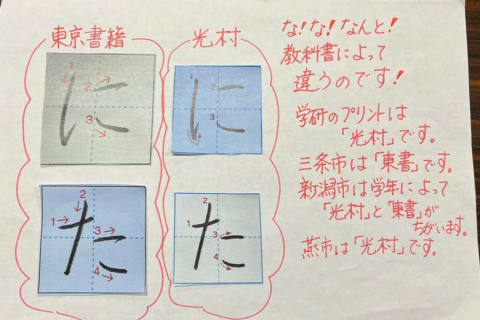 東京書籍
に
1
2
3
た
1
2
3
4
光村
に
1
2
3
た
1
2
3
4
な!な!なんと!
教科書によって
違うのです!
学研のプリントは
「光村」です。
三条市は「東書」です。
新潟市は学年によって
「光村」と「東書」が
ちがいます。
燕市は「光村」です。